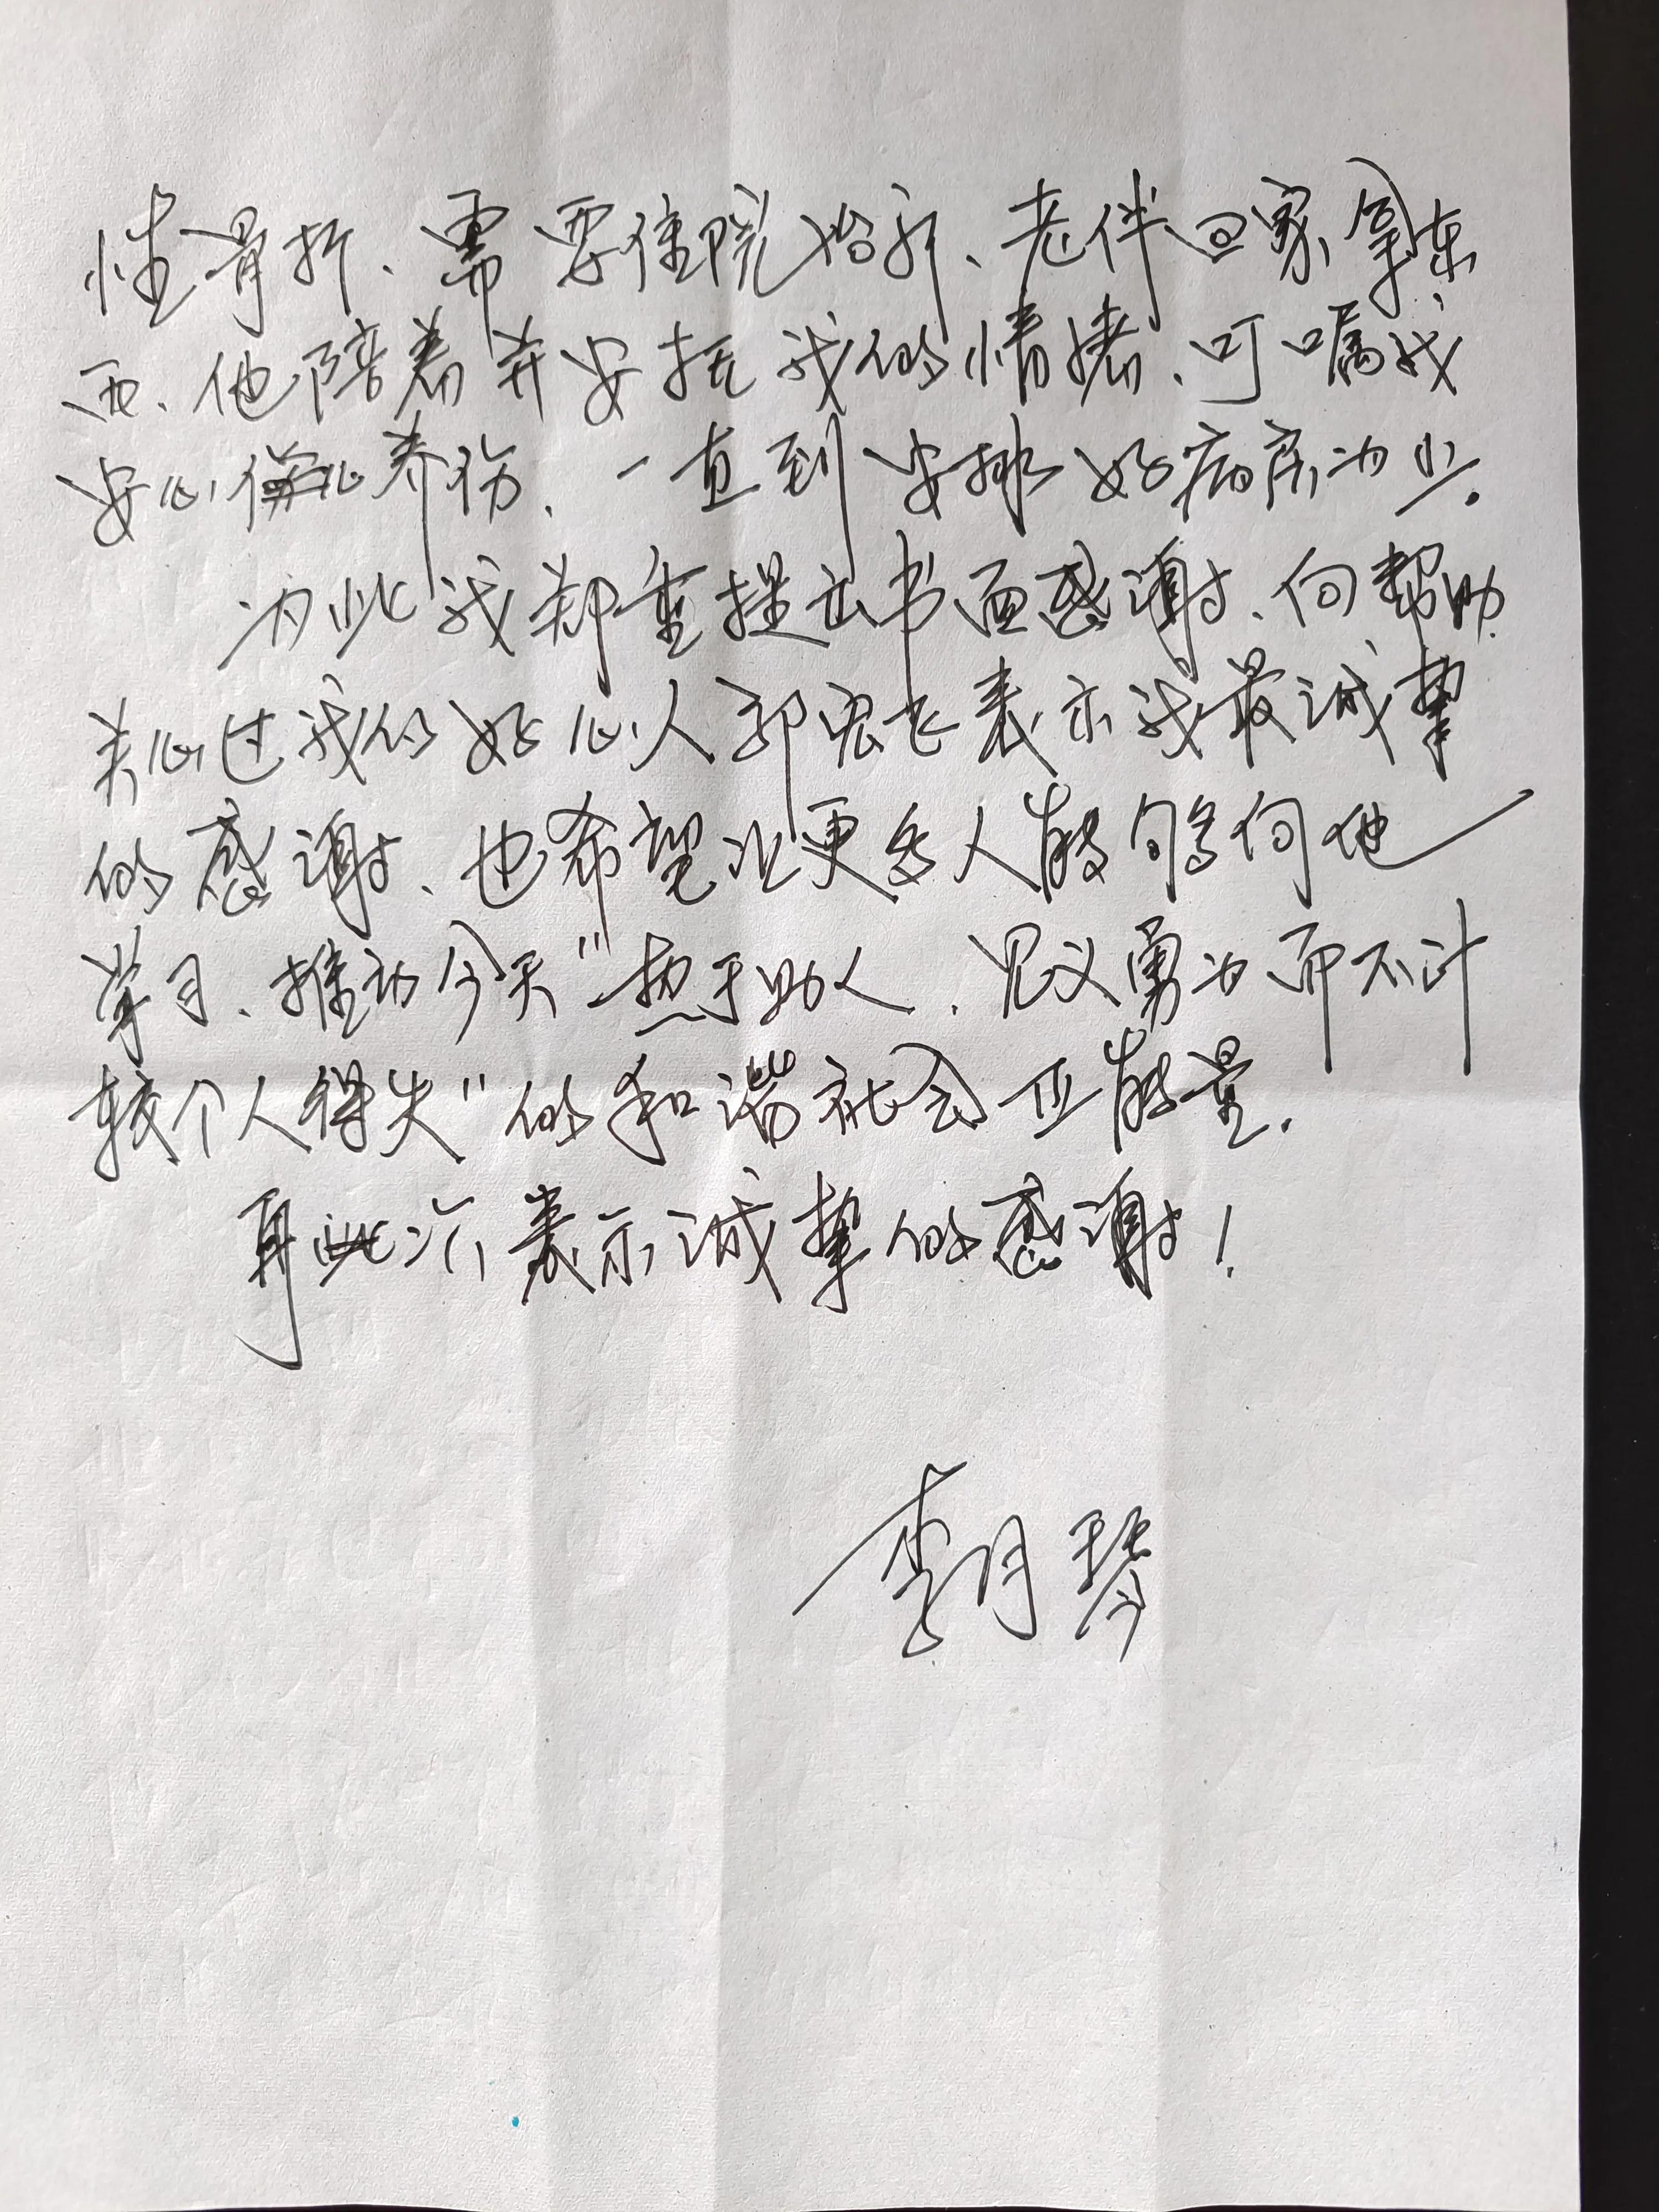 性骨折、需要住院治疗、老伴回家拿东
西、他陪着并安抚我的情绪、叮嘱我
安心养伤、一直到安排好病房为止。
为此我郑重提出书面感谢、向帮助
关心过我的好心人郭飞表示我最诚挚
的感谢、也希望让更多人能够向他
学习、推动今天“热于助人、见义勇为而不计
较个人得失”的和谐社会正能量.
再次表示诚挚的感谢！
李月琴